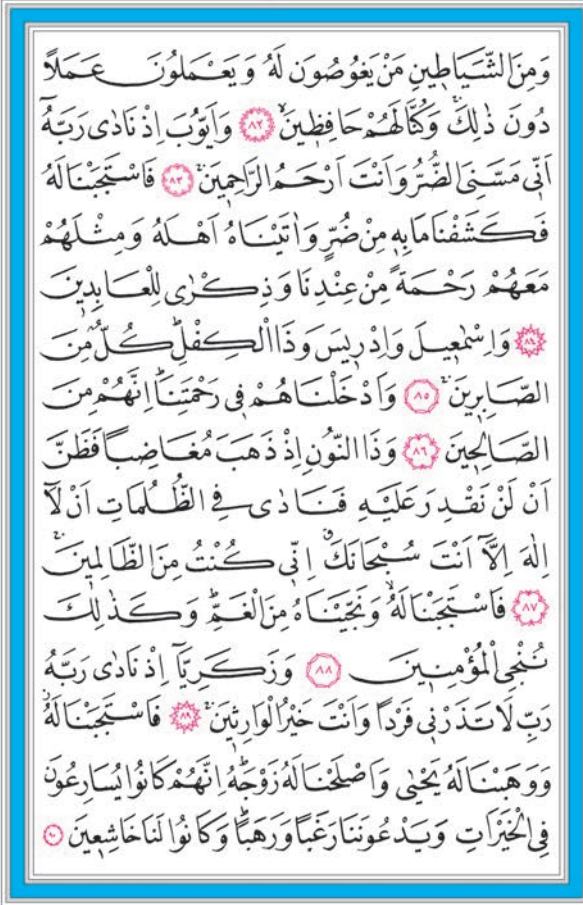 وَمِنَ الشَّيَاطِينِ مَنْ يَغُوصُونَ لَهُ وَيَعْمَلُونَ عَمَلًا
دُونَ ذٰلِكَۚ وَكُنَّا لَهُمْ حَافِظِينَۙ ﴿٨٢﴾ وَاَيُّوبَ اِذْ نَادٰى رَبَّهُٓ
اَنّٖى مَسَّنِىَ الضُّرُّ وَاَنْتَ اَرْحَمُ الرَّاحِمٖينَۚ ﴿٨٣﴾ فَاسْتَجَبْنَا لَهُ
فَكَشَفْنَا مَا بِهٖ مِنْ ضُرٍّ وَاٰتَيْنَاهُ اَهْلَهُ وَمِثْلَهُمْ
مَعَهُمْ رَحْمَةً مِنْ عِنْدِنَا وَذِكْرٰى لِلْعَابِدٖينَ
﴿٨٤﴾ وَاِسْمٰعٖيلَ وَاِدْرٖيسَ وَذَا الْكِفْلِۜ كُلٌّ مِنَ
الصَّابِرٖينَۚ ﴿٨٥﴾ وَاَدْخَلْنَاهُمْ فٖى رَحْمَتِنَاۜ اِنَّهُمْ مِنَ
الصَّالِحٖينَ ﴿٨٦﴾ وَذَا النُّونِ اِذْ ذَهَبَ مُغَاضِبًا فَظَنَّ
اَنْ لَنْ نَقْدِرَ عَلَيْهِ فَنَادٰى فِى الظُّلُمَاتِ اَنْ لَٓا
اِلٰهَ اِلَّٓا اَنْتَ سُبْحَانَكَۗ اِنّٖى كُنْتُ مِنَ الظَّالِمٖينَۚ
﴿٨٧﴾ فَاسْتَجَبْنَا لَهُۙ وَنَجَّيْنَاهُ مِنَ الْغَمِّۜ وَكَذٰلِكَ
نُنْجِى الْمُؤْمِنٖينَ ﴿٨٨﴾ وَزَكَرِيَّٓا اِذْ نَادٰى رَبَّهُ
رَبِّ لَا تَذَرْنٖى فَرْدًا وَاَنْتَ خَيْرُ الْوَارِثٖينَۚ ﴿٨٩﴾ فَاسْتَجَبْنَا لَهُۘ
وَوَهَبْنَا لَهُ يَحْيٰى وَاَصْلَحْنَا لَهُ زَوْجَهُۜ اِنَّهُمْ كَانُوا يُسَارِعُونَ
فِى الْخَيْرَاتِ وَيَدْعُونَنَا رَغَبًا وَرَهَبًاۜ وَكَانُوا لَنَا خَاشِعٖينَ ﴿٩٠﴾